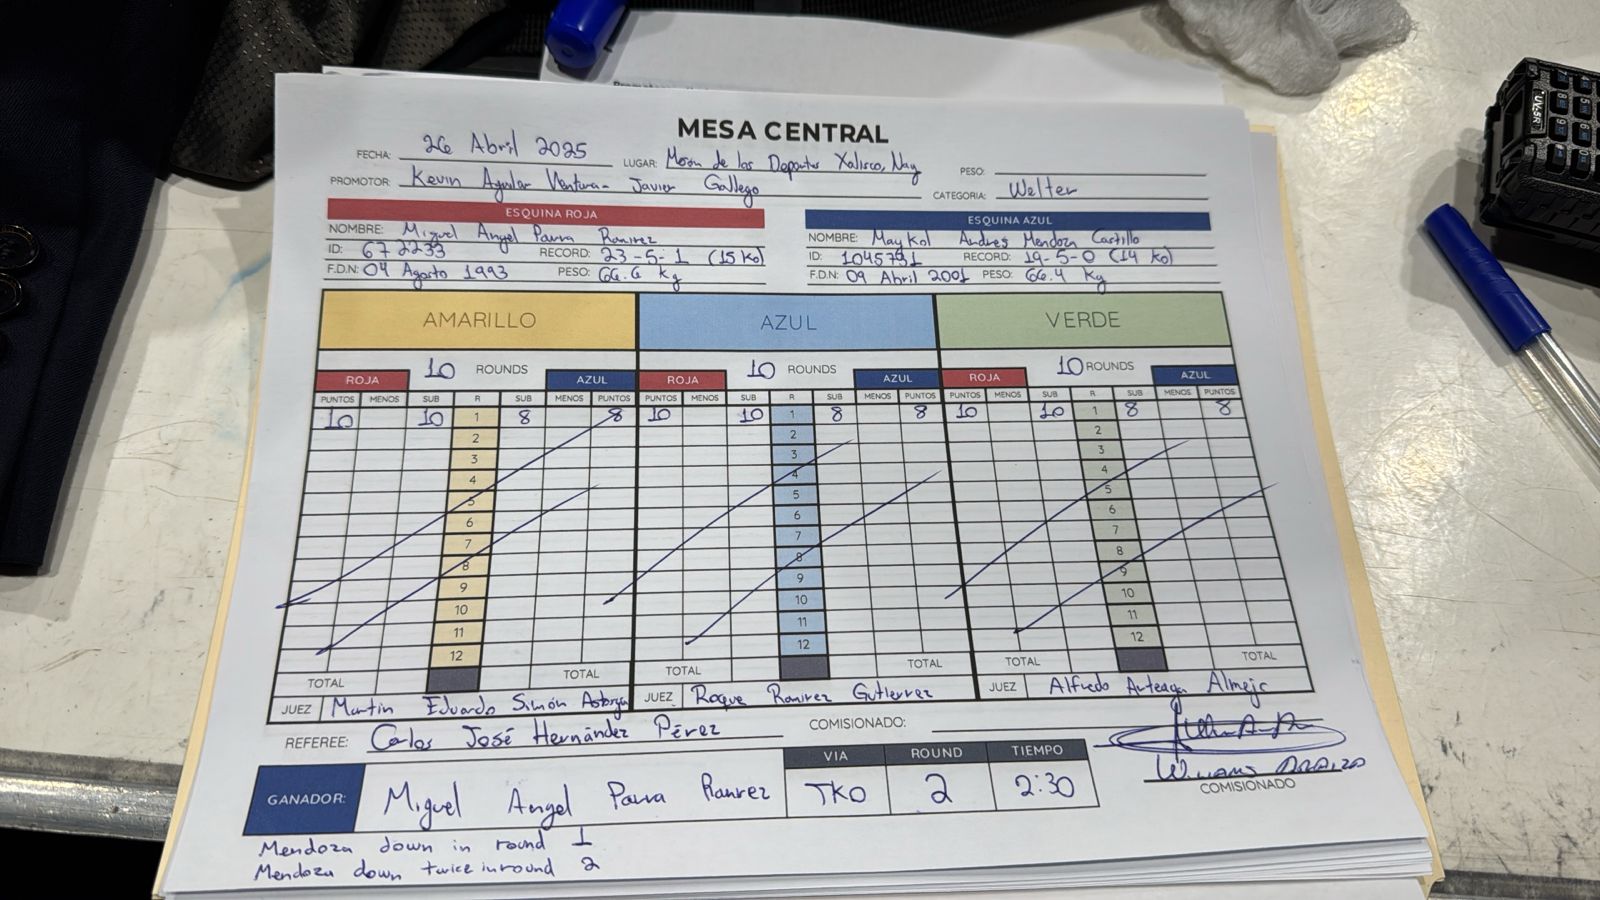 MESA CENTRAL
FECHA: 26 Abril 2025 LUGAR: de los Deportes Xalisco, Nay PESO:
PROMOTOR: Kevin Aguilar Ventura- Javier Gallego CATEGORIA: Welter
ESQUINA ROJA ESQUINA AZUL
NOMBRE: Miguel Angel Parra Ramirez NOMBRE: Maykol Andres Mendoza Castillo
ID: 672233 RECORD: 23-5-1 (15 KO) ID: 1045791 RECORD: 19-5-0 (14 KO)
F.D.N: 04 Agosto 1993 PESO: 66.6 kg F.D.N: 09 Abril 2001 PESO: 66.4 kg
AMARILLO AZUL VERDE
10 ROUNDS 10 ROUNDS 10 ROUNDS
ROJA AZUL ROJA AZUL ROJA AZUL
PUNTOS MENOS SUB R SUB MENOS PUNTOS PUNTOS MENOS SUB R SUB MENOS PUNTOS PUNTOS MENOS SUB R SUB MENOS PUNTOS
10 10 1 8 8 10 10 1 8 8 10 10 1 8 8
2 2 2
3 3 3
4 4 4
5 5 5
6 6 6
7 7 7
8 8 8
9 9 9
10 10 10
11 11 11
12 12 12
TOTAL TOTAL TOTAL TOTAL TOTAL TOTAL
JUEZ Martin Eduardo Simón Astorga JUEZ Roque Ramirez Gutierrez JUEZ Alfredo Arteaga Almeje
REFEREE: Carlos José Hernández Pérez COMISIONADO:
VIA ROUND TIEMPO
GANADOR: Miguel Angel Parra Ramirez TKO 2 2:30
COMISIONADO
Mendoza down in round 1
Mendoza down twice in round 2
UV-5R